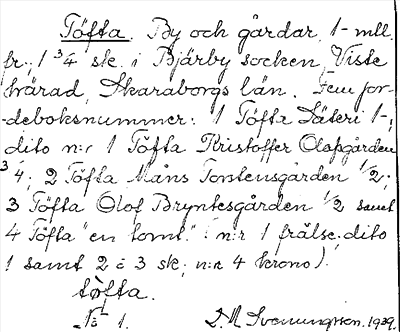 Töfta. By och gårdar, 1- mtl.
fr., 1 3/4 sk. i Bjärby socken, Viste
härad, Skaraborgs län. Fem jor-
deboksnummer: 1 Töfta Säteri 1-;
dito n:r 1 Töfta Kristoffer Olofsgården
3/4; 2 Töfta Måns Torstensgården 1/2;
3 Töfta Olof Bryntesgården 1/2 samt
4 Töfta "en tomt." (n:r 1 frälse, dito
1 samt 2 o 3 sk; n:r 4 krono).
tö̀fta.
1. D. M. Svenungsson. 1929.